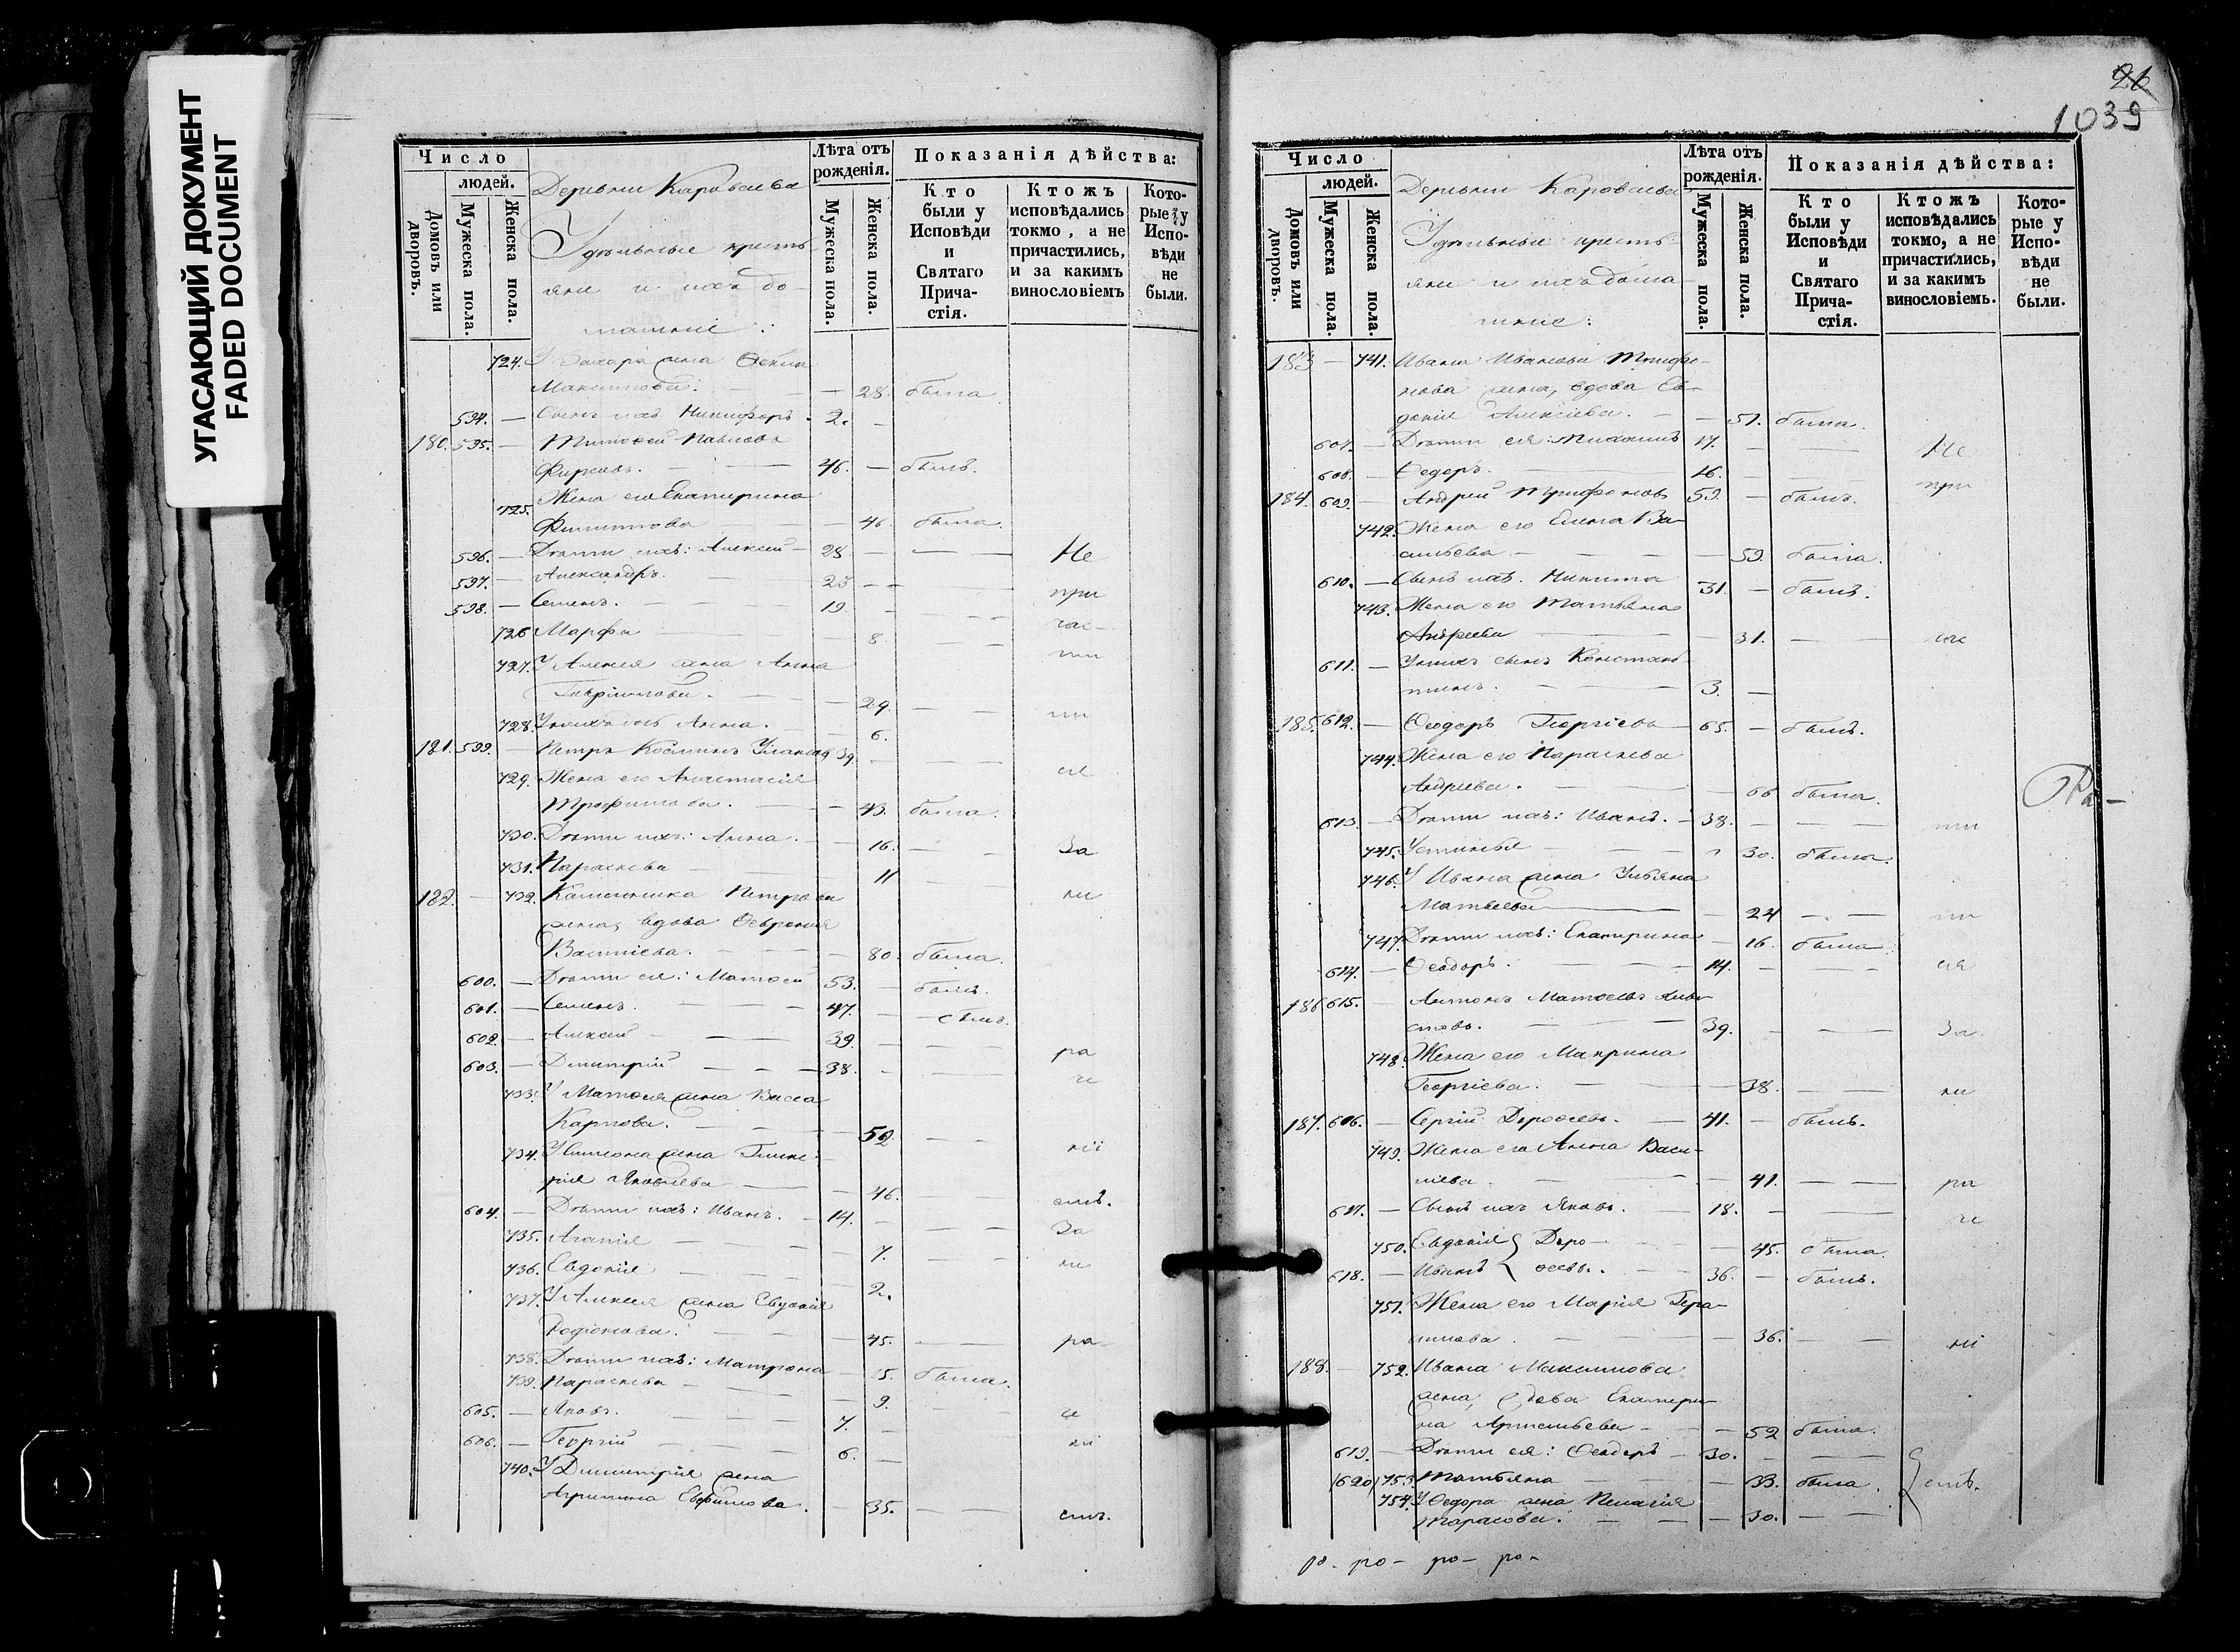 УГАСАЮЩИЙ ДОКУМЕНТ
FADED DOCUMENT
Число
людей.
Домовъ или дворовъ.
Мужеска пола.
Женска пола.
Деревни Караваева
Удѣльные крестья-
яне и ихъ до-
машніе:
Лѣта отъ рожденія.
Мужеска пола.
Женска пола.
Показанія дѣйства:
Кто были у Исповѣди и Святаго Прича-стія.
Ктожъ исповѣдались токмо, а не причастились, и за какимъ винословіемъ
Кото-рые у Испо-вѣди не были.
724. У Захара жена Ѳекла
Максимова. — 28. была
594. — Сынъ ихъ Никифоръ — 2.
180. 595. — Тимоѳей Павловъ
Фирсовъ. — 46. — былъ.
725. Жена его Екатерина
Филиппова — 46. была.
596. — Дѣти ихъ: Алексѣй — 28 — Не
597. — Александръ. 23 —
598. — Семенъ. — 19. — при
726 Марфа — 8. час-
727. У Алексѣя жена Анна ти
Гавріилова. — 29.
728. У нихъ дочь Анна. — 6. ли
181. 599. — Петръ Козминъ 39. —
729. Жена его Анастасія ся
Трофимова. — 43. была.
730. Дѣти ихъ: Анна. — 16. — За
731. Параскева — 11
182. — 732. Петрова ни
жена, вдова Ѳевронія
— 80. была.
600. — Дѣти ея: Матѳей 53. — былъ.
601. — Семенъ. — 47. — былъ.
602. — Алексѣй — 39. — ра
603. — Димитрій — 38. — че
733. У Матѳея жена Васса
Карпова. — 52. — ніі
734. У Симеона жена Глике-
рія Яковлева — 46. емъ.
604. — Дѣти ихъ: Иванъ. — 14. — За
735. Агапія — 7. — ни
736. Евдокія — 2.
737. У Алексѣя жена Евдокія
Родіонова. — 45. — ра-
738. Дѣти ихъ: Матрона — 15. была.
739. Параскева — 9. че
605. — Яковъ. 7. —
606. — Георгій — 6. — ні
740. У Димитрія жена
Агрипина Евфимова. — 35. — емъ.
26
1039
Число
людей.
Домовъ или дворовъ.
Мужеска пола.
Женска пола.
Деревни Караваева
Удѣльные крестья-
яне и ихъ дома
шніе:
Лѣта отъ рожденія.
Мужеска пола.
Женска пола.
Показанія дѣйства:
Кто были у Исповѣди и Святаго Прича-стія.
Ктожъ исповѣдались токмо, а не причастились, и за какимъ винословіемъ.
Кото-рые у Испо-вѣди не были.
183 — 741. Ивана Иванова Трифо-
нова жена, вдова Ев-
докія Алексѣева. — 51. была.
607. — Дѣти ея: Михаилъ 17. — Не
608. — Ѳедоръ. 16. —
184. 609. — Андрей Трифоновъ 59. — былъ. при
742. Жена его Елена Ва-
сильева — 59. была.
610. — Сынъ ихъ. Никита 31. — былъ.
743. Жена его Татьяна
Андреева — 31. — час
611. — У нихъ сынъ Констан-
тинъ. — 3. —
185. 612. — Ѳеодоръ Георгіевъ 65. — былъ.
744. Жена его Параскева
Андреева. — 66 была.
613. — Дѣти ихъ: Иванъ. — 38. — ти
745. Устинья — 30. была.
746. У Ивана жена Ульяна
Матвеева — 24 — ли
747. Дѣти ихъ: Екатерина — 16. была.
614. — Ѳеодоръ. — 14. — ся
186 615. — Антонъ Матѳеевъ
39. — За
748. Жена его Макрина
Георгіева. — 38. — ни
187. 606. — Сергій Дороѳеевъ. — 41. — былъ.
749. Жена его Анна Васи-
лева. — 41. — ра
617. — Сынъ ихъ Яковъ. — 18. — че
750. Евдокія } Доро- — 45. была.
618. — Иванъ } ѳеевы. — 36. — былъ.
751. Жена его Марія Гера-
симова. — 36. — ні
188. — 752. Ивана Максимова
жена, вдова Екатери-
на Артемьева — 52 была.
619. — Дѣти ея: Ѳеодоръ — 30. —
620 753. Татьяна — 33. была. емъ.
754. У Ѳедора жена Пелагія
Тарасова. — 30. —
ро- ро- ро- ро-